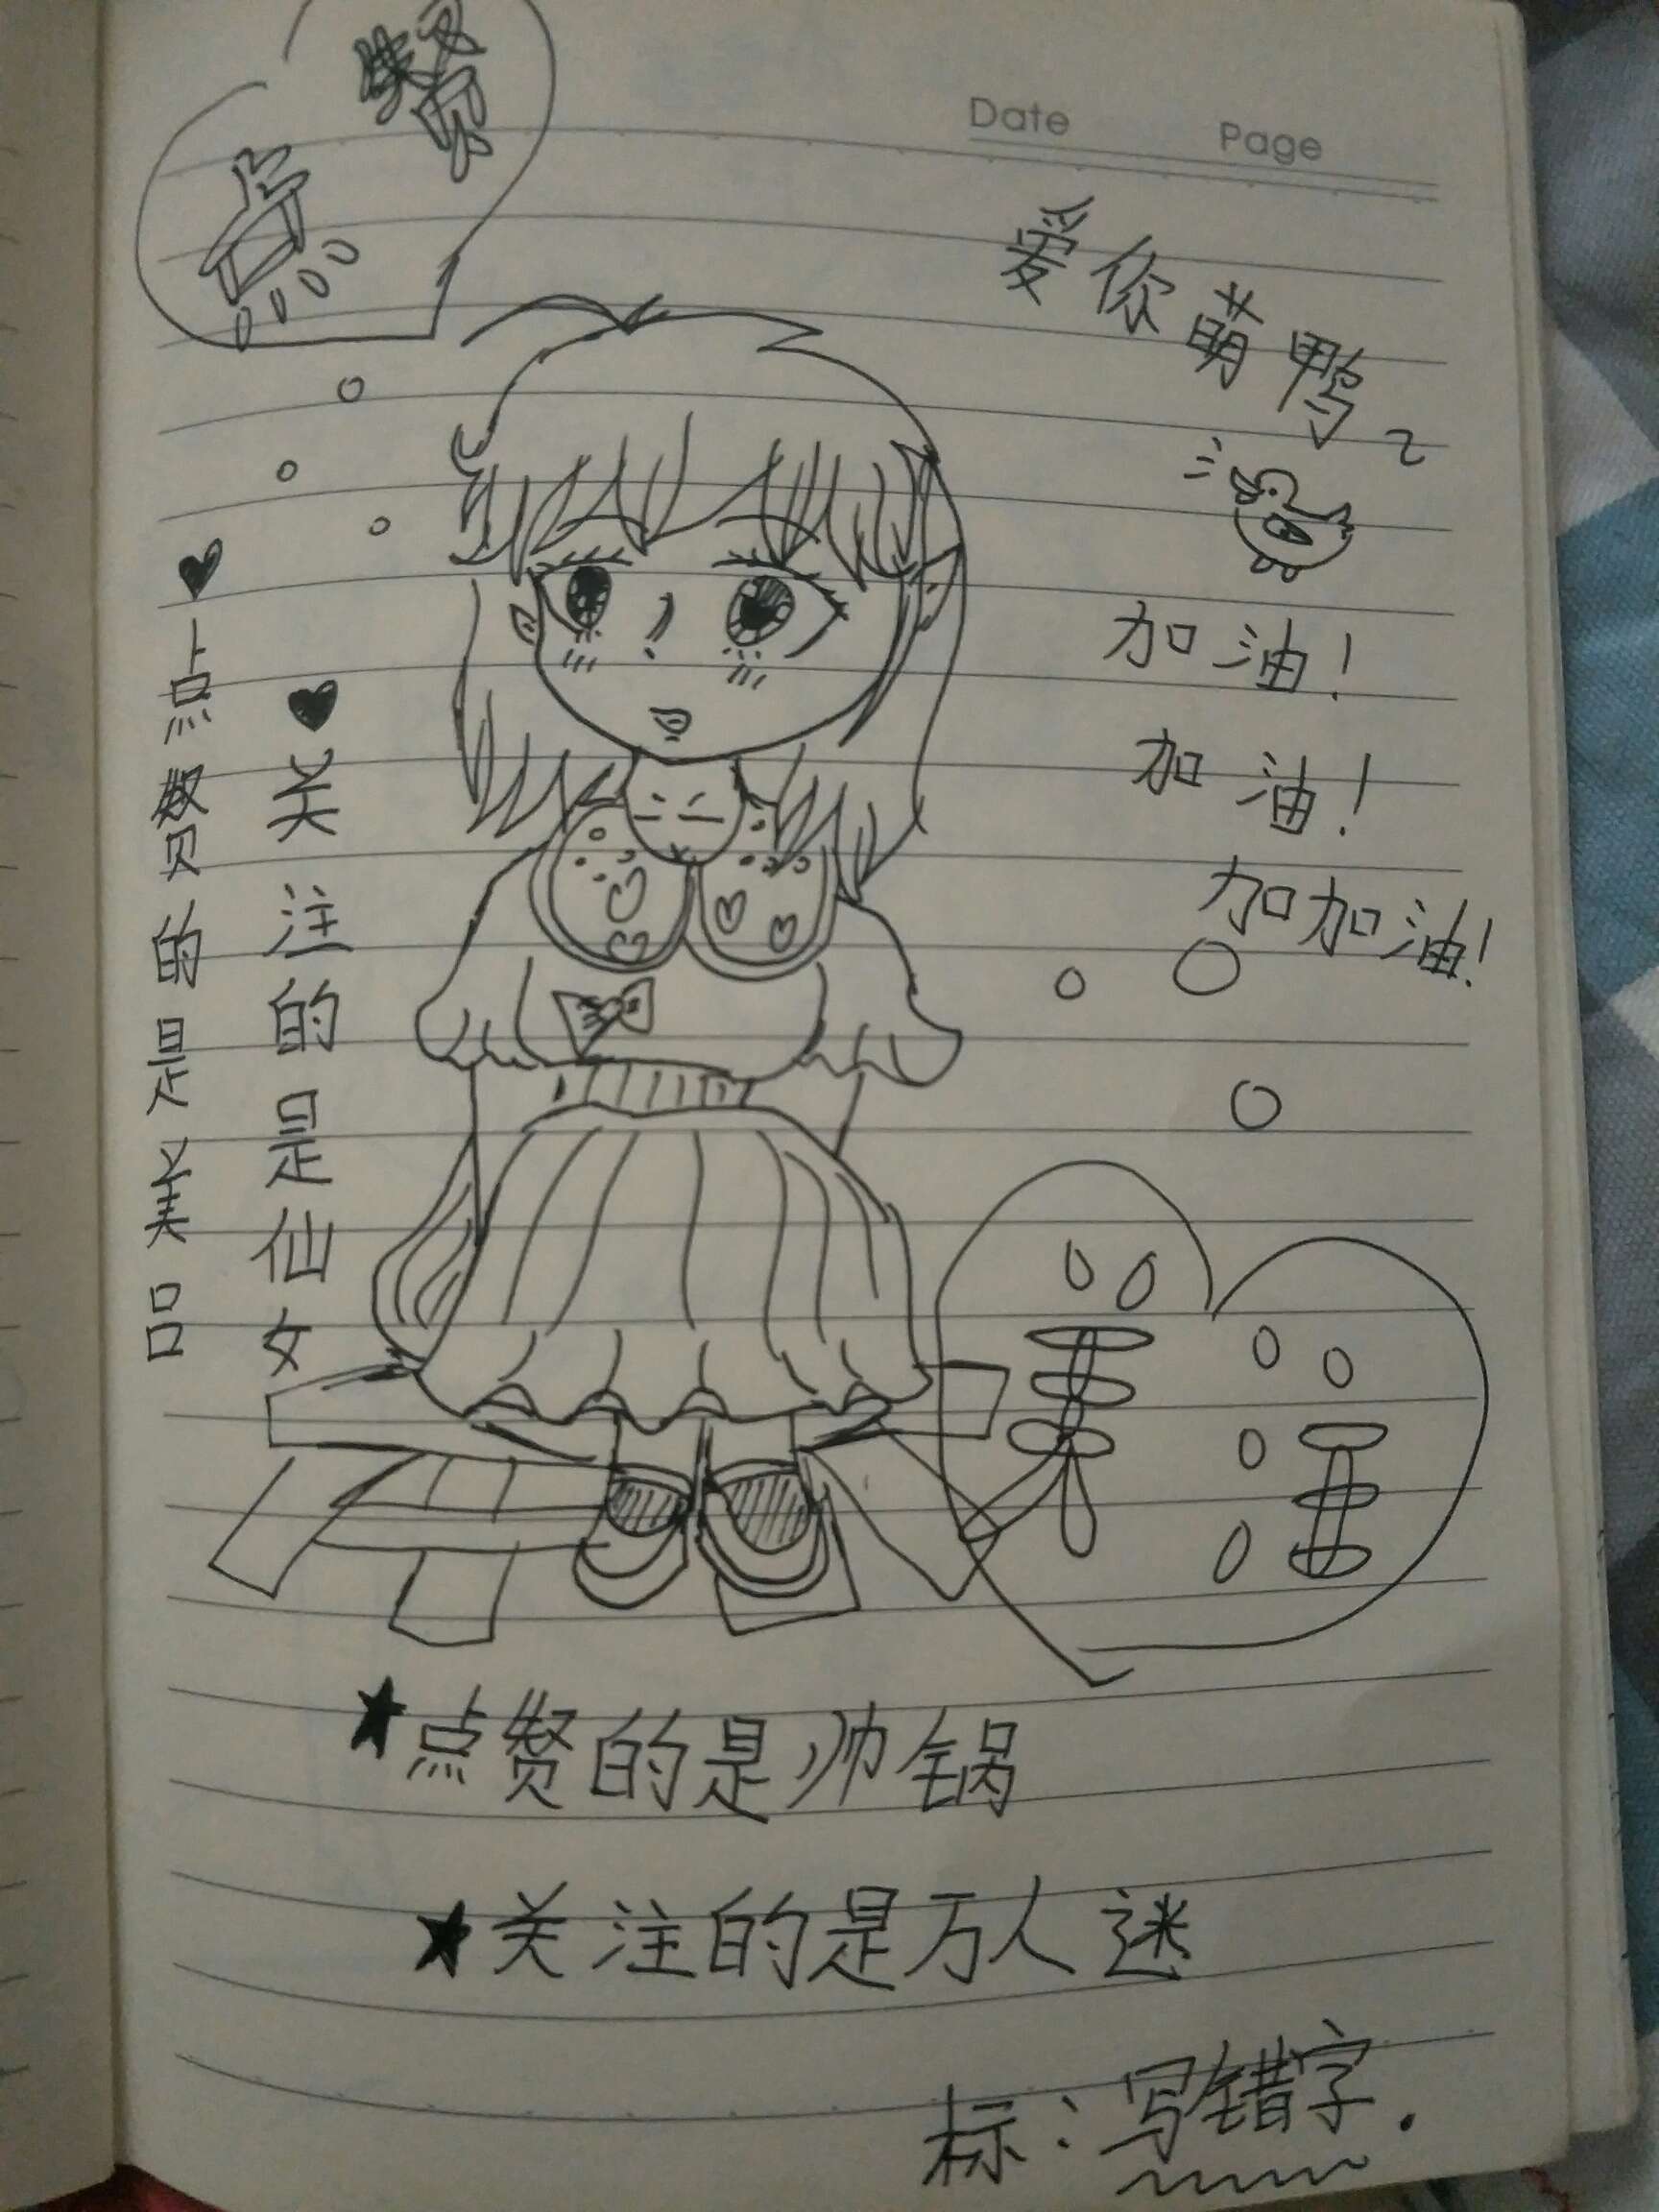 Date Page
点赞
爱你萌鸭~
加油!
加油!
加加油!
♥点赞的是美品
♥关注的是仙女
关注
★点赞的是帅锅
★关注的是万人迷
标:写错字.